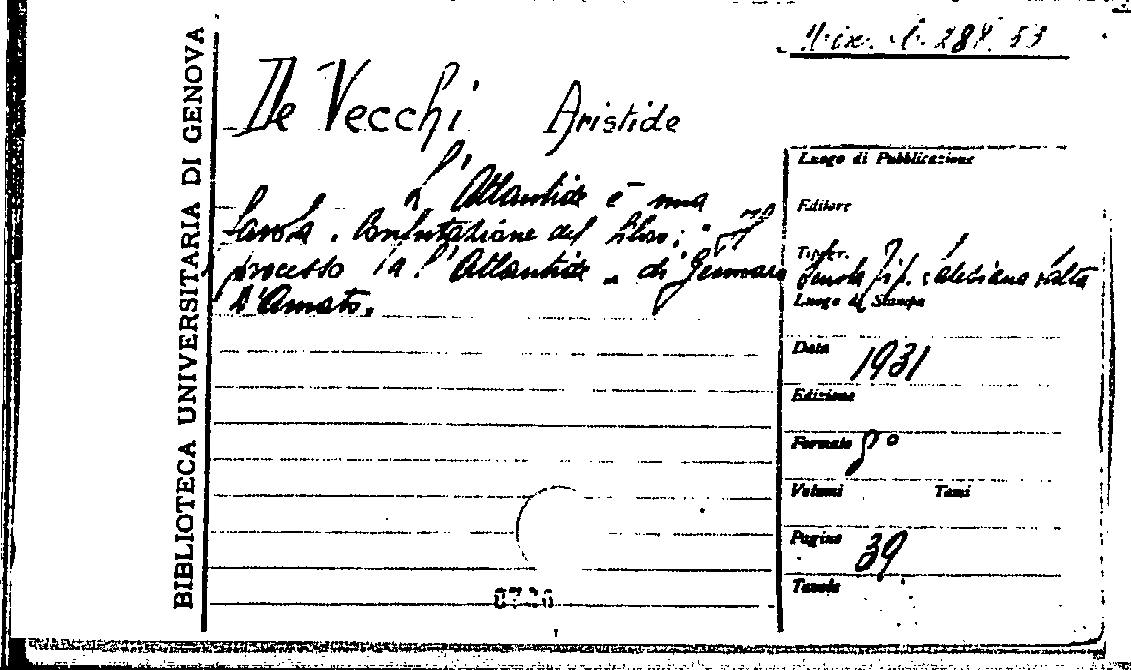 BIBLIOTECA UNIVERSITARIA DI GENOVA
Misc. b. 284. 53
De Vecchi Aristide
L'Atlantide è una
favola. Confutazione del libro: "Il
processo a l'Atlantide" di Gennaro
D'Amato.
Luogo di Pubblicazione
Editore
Tipogr.
Scuola Tip. Salesiana
Luogo di Stampa
Data 1931
Edizione
Formato 8°
Volumi Tomi
Pagine 39
Tavole